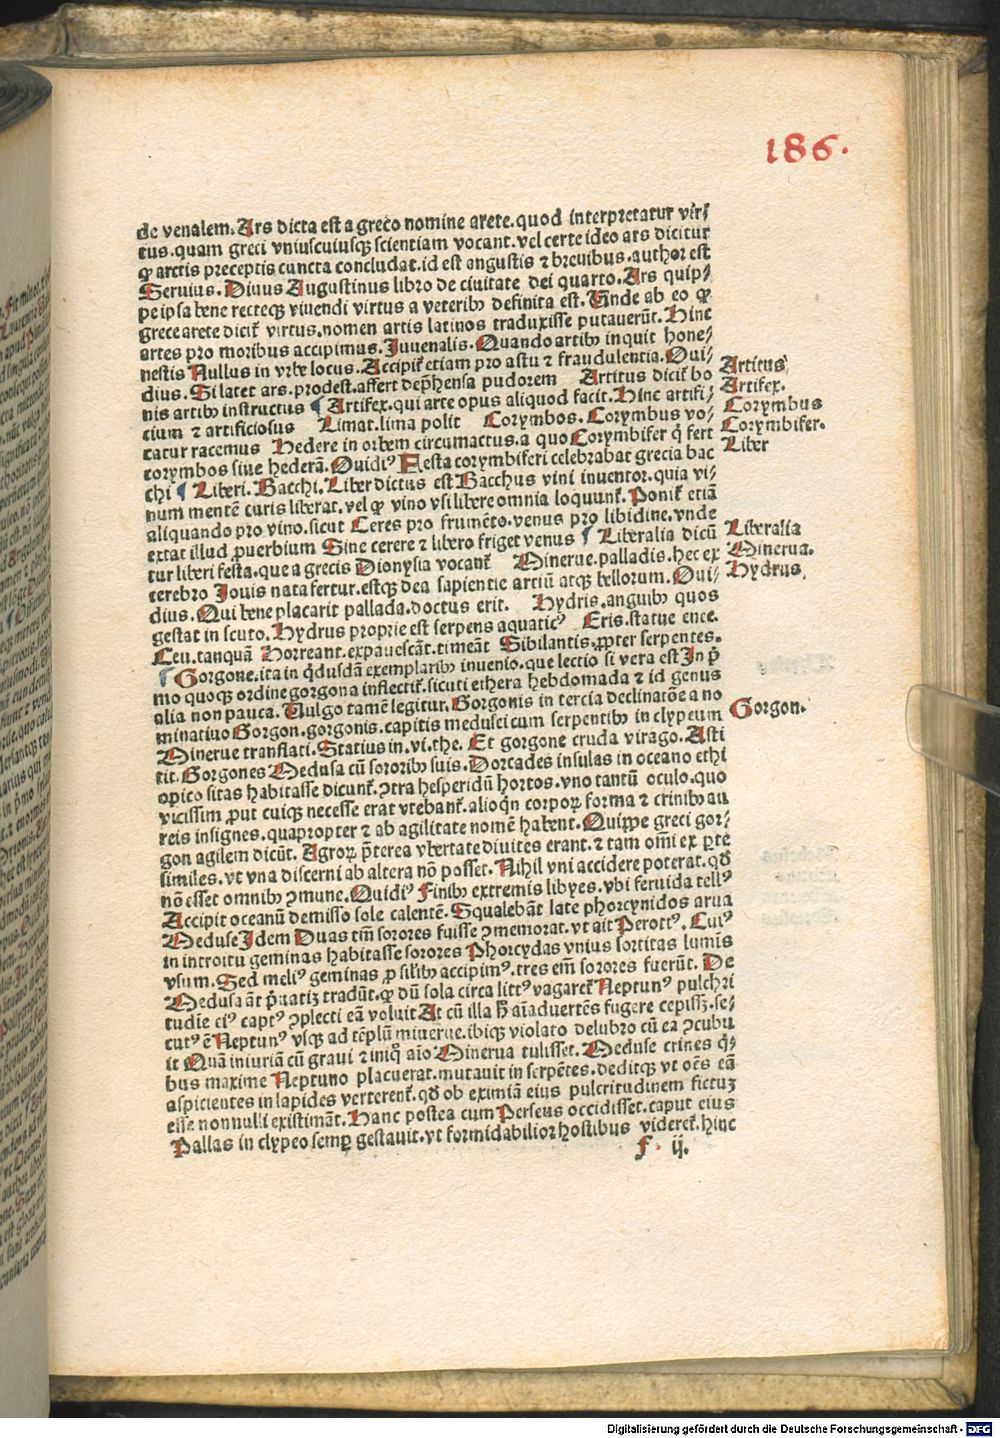 186.
de venalem. Ars dicta est a greco nomine arete. quod interpretatur vir⸗
tus. quam greci vniuscuiusqꝫ scientiam vocant. vel certe ideo ars dicitur
ꝙ arctis preceptis cuncta concludat. id est angustis ⁊ breuibus. author est
Seruius. Diuus Augustinus libro de ciuitate dei quarto. Ars quip⸗
pe ipsa bene recteqꝫ viuendi virtus a veteribꝰ definita est. Unde ab eo ꝙ
grece arete dicit̃ virtus. nomen artis latinos traduxisse putauerũt. Hinc
artes pro moribus accipimus. Juuenalis. Quando artibꝰ inquit hone⸗
nestis Nullus in vrbe locus. Accipit̃ etiam pro astu ⁊ fraudulentia. Oui⸗
dius. Si latet ars. prodest. affert dep̃hensa pudorem Artitus dicit̃ bo
nis artibꝰ instructus ¶ Artifex. qui arte opus aliquod facit. Hinc artifi⸗
cium ⁊ artificiosus Limat. lima polit Corymbos. Corymbus vo⸗
catur racemus Hedere in orbem circumactus. a quo Corymbifer q̃ fert
corymbos siue hederã. Ouidiꝰ Festa corymbiferi celebrabat grecia bac
chi ¶ Liberi. Bacchi. Liber dictus est Bacchus vini inuentor. quia vi⸗
num mentẽ curis liberat. vel ꝙ vino vsi libere omnia loquunt̃. Ponit̃ etiã
aliquando pro vino. sicut Ceres pro frumẽto. venus pro libidine. vnde
extat illud ꝓuerbium Sine cerere ⁊ libero friget venus ¶ Liberalia dicũ
tur liberi festa. que a grecis Dionysia vocant̃ Minerue. palladis. hec ex
cerebro Jouis nata fertur. estqꝫ dea sapientie artiũ atqꝫ bellorum. Oui⸗
dius. Qui bene placarit pallada. doctus erit. Hydris. anguibꝰ quos
gestat in scuto. Hydrus proprie est serpens aquaticꝰ Eris. statue enee.
Ceu. tanquã Horreant. expauescãt. timeãt Sibilantis. ꝓpter serpentes.
¶ Gorgone. ita in q̃dusdã exemplaribꝰ inuenio. que lectio si vera est In p̃
mo quoqꝫ ordine gorgona inflectit̃. sicuti ethera hebdomada ⁊ id genus
alia non pauca. Uulgo tamẽ legitur. Gorgonis in tercia declinatõe a no
minatiuo Gorgon. gorgonis. capitis medusei cum serpentibꝰ in clypeum
Minerue translati. Statius in. vi. the. Et gorgone cruda virago. Asti
tit. Gorgones Medusa cũ sororibꝰ suis. Dorcades insulas in oceano ethi
opico sitas habitasse dicunt̃. ꝯtra hesperidũ hortos. vno tantũ oculo. quo
vicissim ꝓut cuiqꝫ necesse erat vtebant̃. alioqñ corpoꝝ forma ⁊ crinibꝰ au
reis insignes. quapropter ⁊ ab agilitate nomẽ habent. Quippe greci gor⸗
gon agilem dicũt. Agroꝝ p̃terea vbertate diuites erant. ⁊ tam om̃i ex ꝑte
similes. vt vna discerni ab altera nõ posset. Nihil vni accidere poterat. qđ
nõ esset omnibꝰ ꝯmune. Ouidiꝰ Finibꝰ extremis libyes. vbi feruida tellꝰ
Accipit oceanũ demisso sole calentẽ. Squalebãt late phorcynidos arua
Meduse Idem Duas tm̃ sorores fuisse ꝯmemorat. vt ait Perottꝰ. Cuiꝰ
in introitu geminas habitasse sorores Phorcydas vnius sortitas lumĩs
vsum. Sed meliꝰ geminas ꝓ silibꝰ accipimꝰ. tres em̃ sorores fuerũt. De
Medusa ãt p̃uatiꝫ tradũt. ꝙ dũ sola circa littꝰ vagaret̃ Neptunꝰ pulchri
tudĩe eiꝰ captꝰ ꝯplecti eã voluit At cũ illa h̃ aĩaduertẽs fugere cepissꝫ. se⸗
cutꝰ ẽ Neptunꝰ vsqꝫ ad tẽplũ minerue. ibiqꝫ violato delubro cũ ea ꝯcubu
it Quã iniuriã cũ graui ⁊ iniq̃ aĩo Minerua tulisset. Meduse crines q̃⸗
bus maxime Neptuno placuerat. mutauit in serpẽtes. deditqꝫ vt oẽs eã
aspicientes in lapides verterent̃. qđ ob eximiã eius pulcritudinem fictuꝫ
esse nonnulli existimãt. Hanc postea cum Perseus occidisset. caput eius
Pallas in clypeo semꝑ gestauit. vt formidabilior hostibus videret̃. hinc
f. ij.
Artitus
Artifex.
Corymbus
Corymbifer.
Liber
Liberalia
Minerua.
Hydrus.
Gorgon.
Digitalisierung gefördert durch die Deutsche Forschungsgemeinschaft - DFG